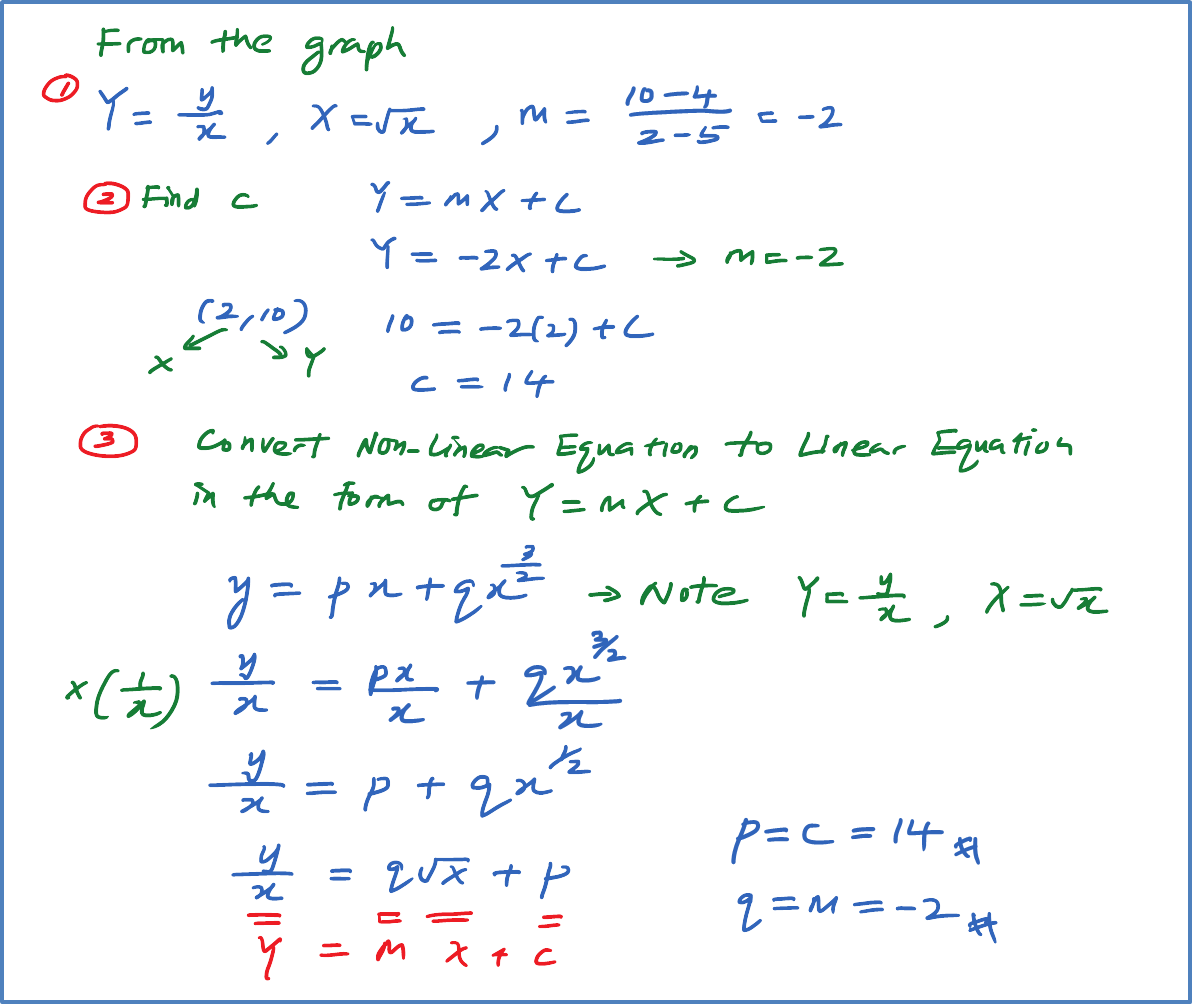 From the graph
① Y = y/x , X = √x , m = (10-4)/(2-5) = -2
② Find c Y = mX + c
Y = -2X + c → m = -2
(2,10) 10 = -2(2) + c
X Y
c = 14
③ Convert Non-Linear Equation to Linear Equation
in the form of Y = mX + c
y = px + qx^(3/2) → Note Y = y/x , X = √x
×(1/x) y/x = px/x + qx^(3/2)/x
y/x = p + qx^(1/2)
p = c = 14 #
y/x = q√x + p
q = m = -2 #
Y = m X + c